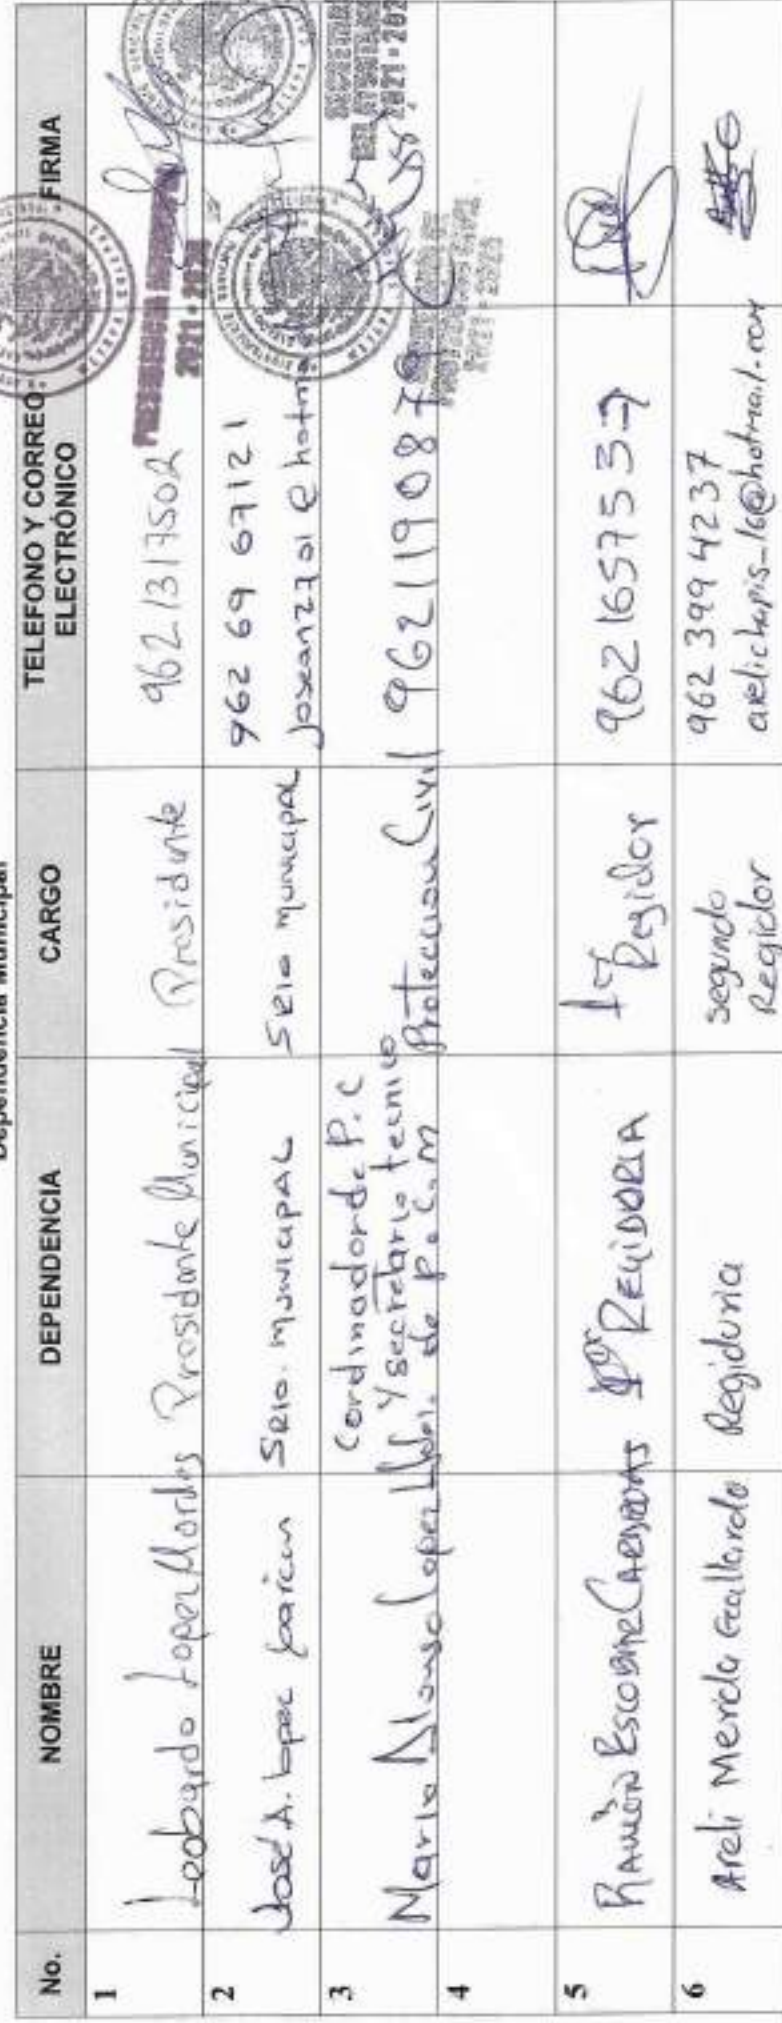 Dependencia Municipal
No. NOMBRE DEPENDENCIA CARGO TELEFONO Y CORREO ELECTRÓNICO FIRMA
1 Leobardo Lopez Morales Presidente Municipal Presidente 9621317502
PRESIDENCIA MUNICIPAL
2021 - 2024
2 José A. Lopez Garcia SRIO. MUNICIPAL SRIO MUNICIPAL 962 69 67121
joseanzzi01@hotma
3 Mario Alonso Lopez Cordinador de P. C
y secretario tecnico
de P. C. M Protección Civil 9621190878
4
5 RAMÓN ESCOBAR CARDENAS 1er REGIDORIA 1er Regidor 9621657537
6 Areli Merida Gallardo Regiduria Segundo Regidor 962 399 4237
arelichapis_16@hotmail.com